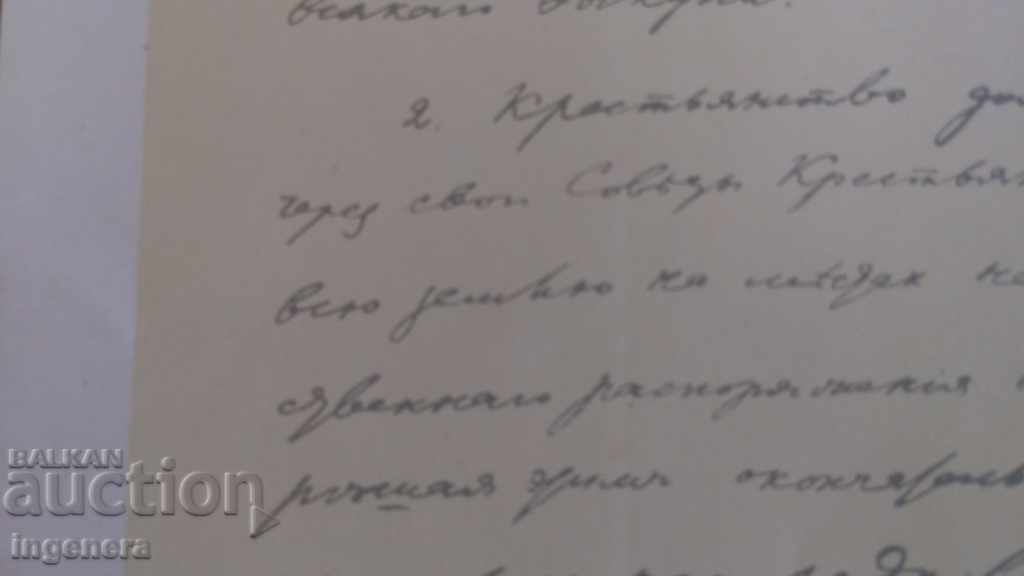 всякого выкупа.
2. Крестьянство дол
через свои Советы Крестьян
всю землю на мѣстах не
ственнаго распоряжения
рѣшая этим окончатель
BALKAN
auction
ingenera